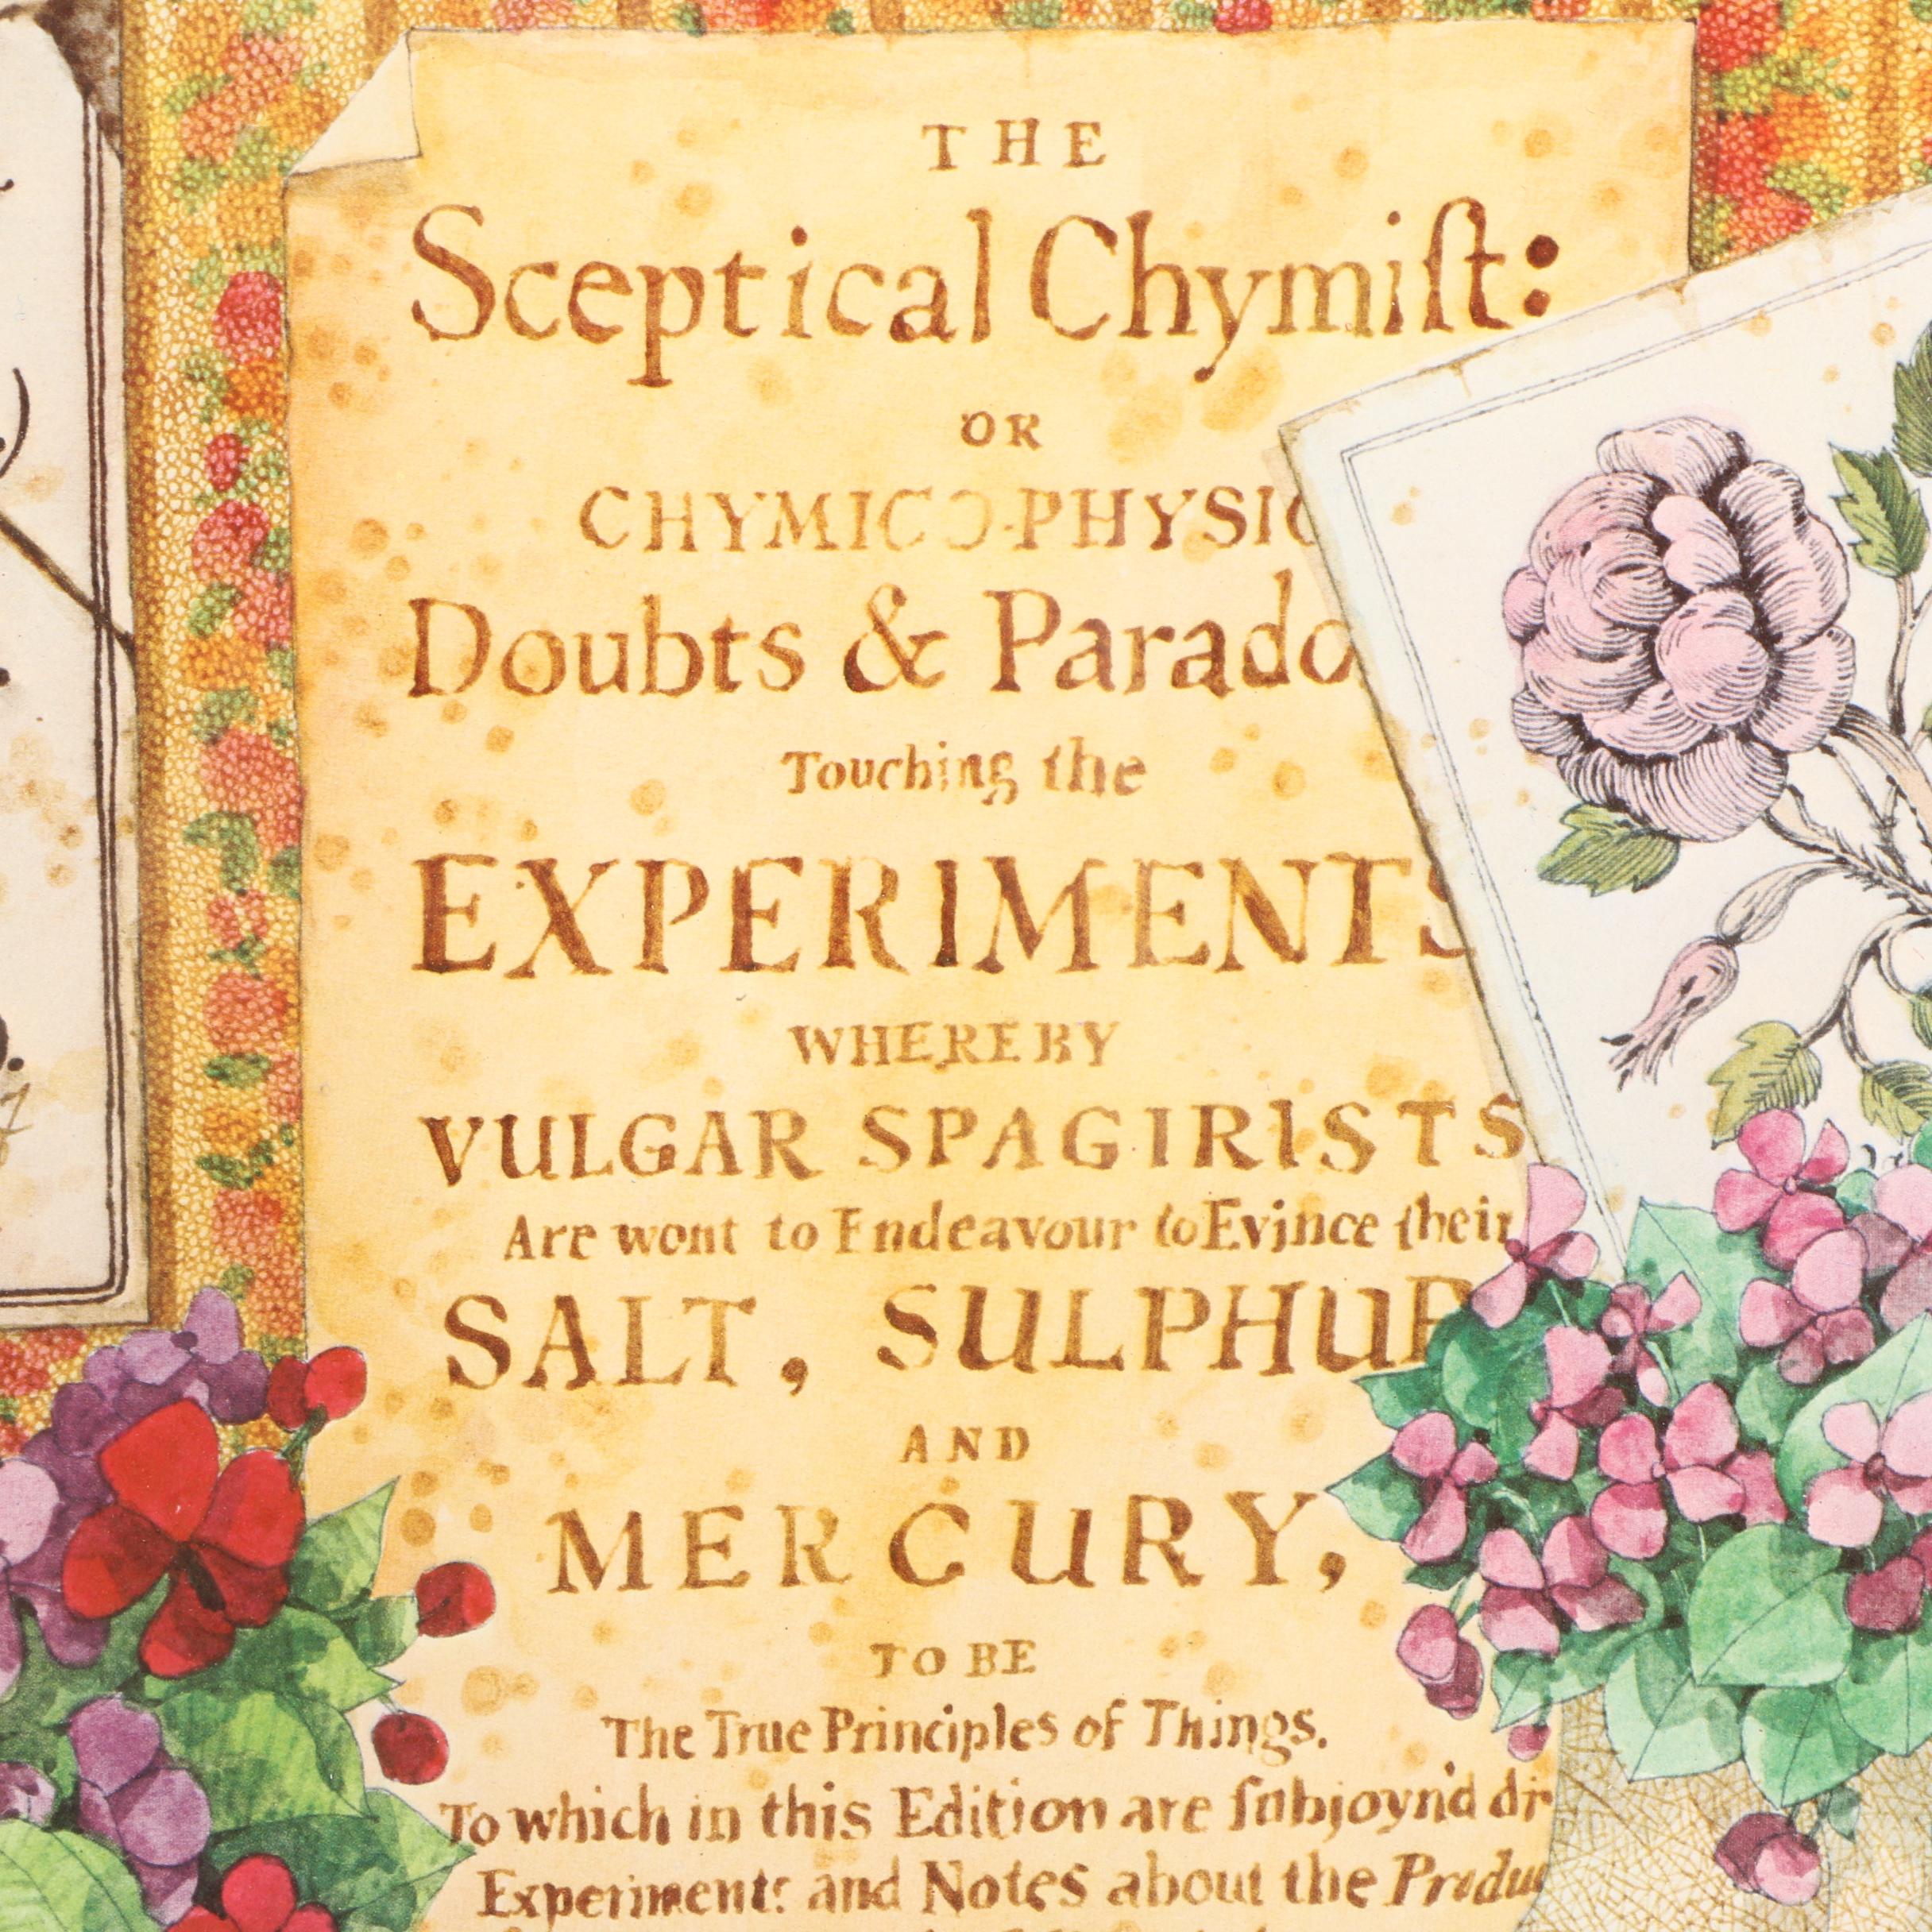 THE
Sceptical Chymiſt:
OR
CHYMICO-PHYSIC
Doubts & Parado
Touching the
EXPERIMENTS
WHEREBY
VULGAR SPAGIRISTS
Are wont to Endeavour to Evince their
SALT, SULPHUR
AND
MERCURY,
TO BE
The True Principles of Things.
To which in this Edition are ſubjoyn'd
Experiments and Notes about the